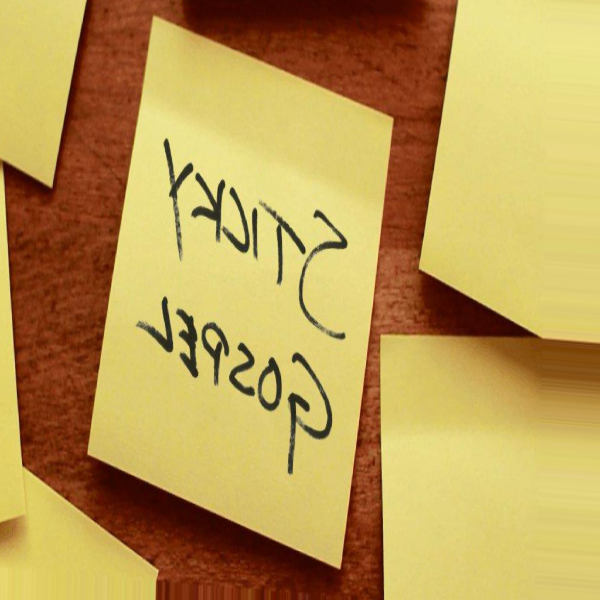 STICKY
GOSPEL